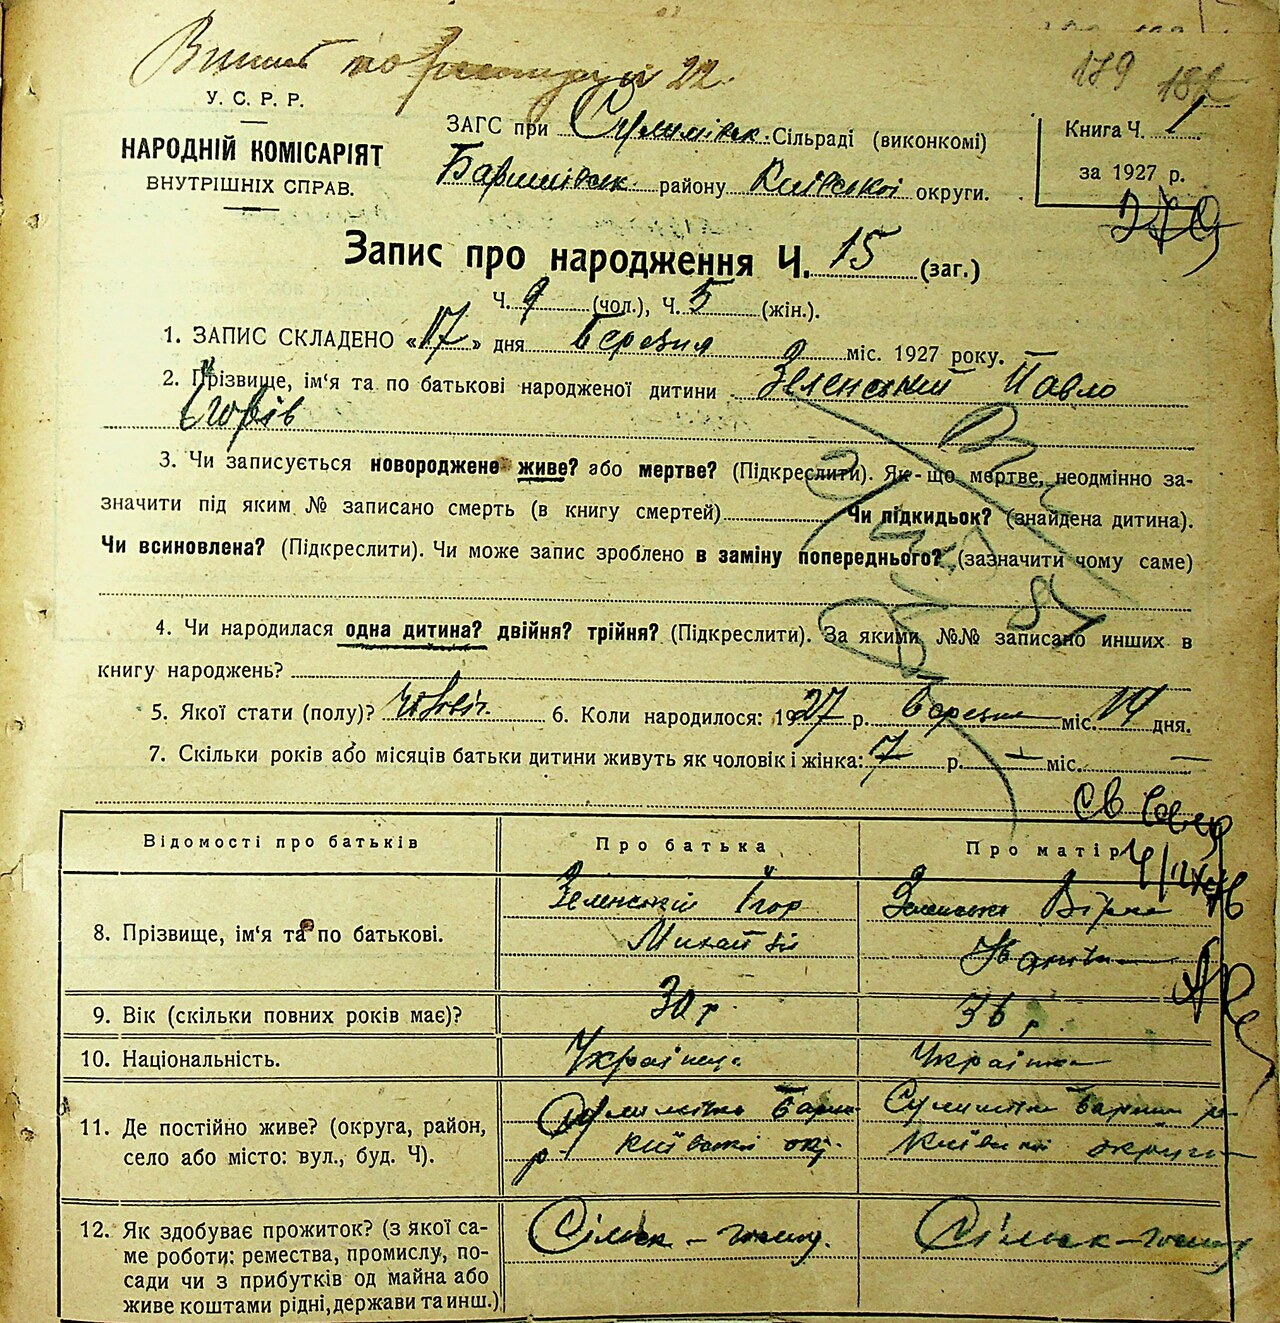 179
У. С. Р. Р.
НАРОДНІЙ КОМІСАРІЯТ
ВНУТРІШНІХ СПРАВ.
ЗАГС при Сулимівськ. Сільраді (виконкомі)
Баришівськ. району Київської округи.
Книга Ч. 1
за 1927 р.
279
Запис про народження Ч. 15 (заг.)
Ч. 9 (чол.), Ч. 5 (жін.).
1. ЗАПИС СКЛАДЕНО «17» дня Березня міс. 1927 року.
2. Прізвище, ім'я та по батькові народженої дитини Зеленський Павло
Ігорів
3. Чи записується новороджене живе? або мертве? (Підкреслити). Як-що мертве, неодмінно за-
значити під яким № записано смерть (в книгу смертей) Чи підкидьок? (знайдена дитина).
Чи всиновлена? (Підкреслити). Чи може запис зроблено в заміну попереднього? (зазначити чому саме)
4. Чи народилася одна дитина? двійня? трійня? (Підкреслити). За якими №№ записано инших в
книгу народжень?
5. Якої стати (полу)? чоловіч. 6. Коли народилося: 1927 р. Березня міс. 14 дня.
7. Скільки років або місяців батьки дитини живуть як чоловік і жінка: 7 р. — міс. —
Відомості про батьків Про батька Про матір
8. Прізвище, ім'я та по батькові.
Зеленській Ігор
Зеленська Віра
9. Вік (скільки повних років має)? 30 р 36 р.
10. Національність. Українец. Українка
11. Де постійно живе? (округа, район,
село або місто: вул., буд. Ч).
Сулимівка Бариш
р Київської окр
Сулимівка Бариш р
Київської округи
12. Як здобуває прожиток? (з якої са-
ме роботи: ремества, промислу, по-
сади чи з прибутків од майна або
живе коштами рідні, держави та инш.)
Сільск-господ.
Сільск-господ